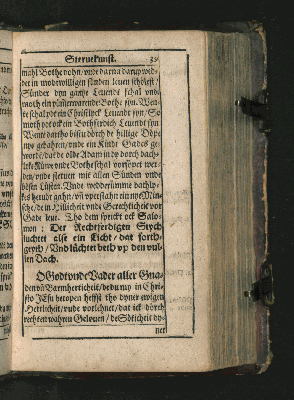 Sternekunst. 39
mahl Bothe dohn / unde darna darup wed-
der in modtwilligen sünden leuen schölest /
Sünder dyn gantze Leuendt schal unde
moth ein
Bothe syn. Wen-
te schal ydt ein Christlyck Leuendt syn / So
moth ydt ock ein Bothferdich Leuendt syn
Wente dartho bistu dorch de hillige Döpe
nye gebahren / unde ein Kindt Gades ge-
worde / dat de olde Adam in dy dorch dach-
lyke Rüwe unde Bothe schal vorsöpet wer-
den / unde steruen mit allen Sünden unde
bösen Lüsten. Unde wedderümme dachly-
kes herudt gahn / vñ vperstahn ein nye Min-
sche / de in Hillicheit unde Gerechticheit vor
Gade leue. Tho dem sprickt ock Salo-
mon : Der Rechtferdigen Stych
lüchtet alse ein Licht / dat forth-
geyth / Und lüchtet beth up den vul-
len Dach.
O Godt unde Vader aller Gna-
den vñ Barmherticheit / de du my in Chri-
sto JEsu beropen heffst tho dyner ewigen
Herrlicheit / unde vorlehnet / dat ick dörch
rechten wahren Gelouen / de Söticheit dy-
ner